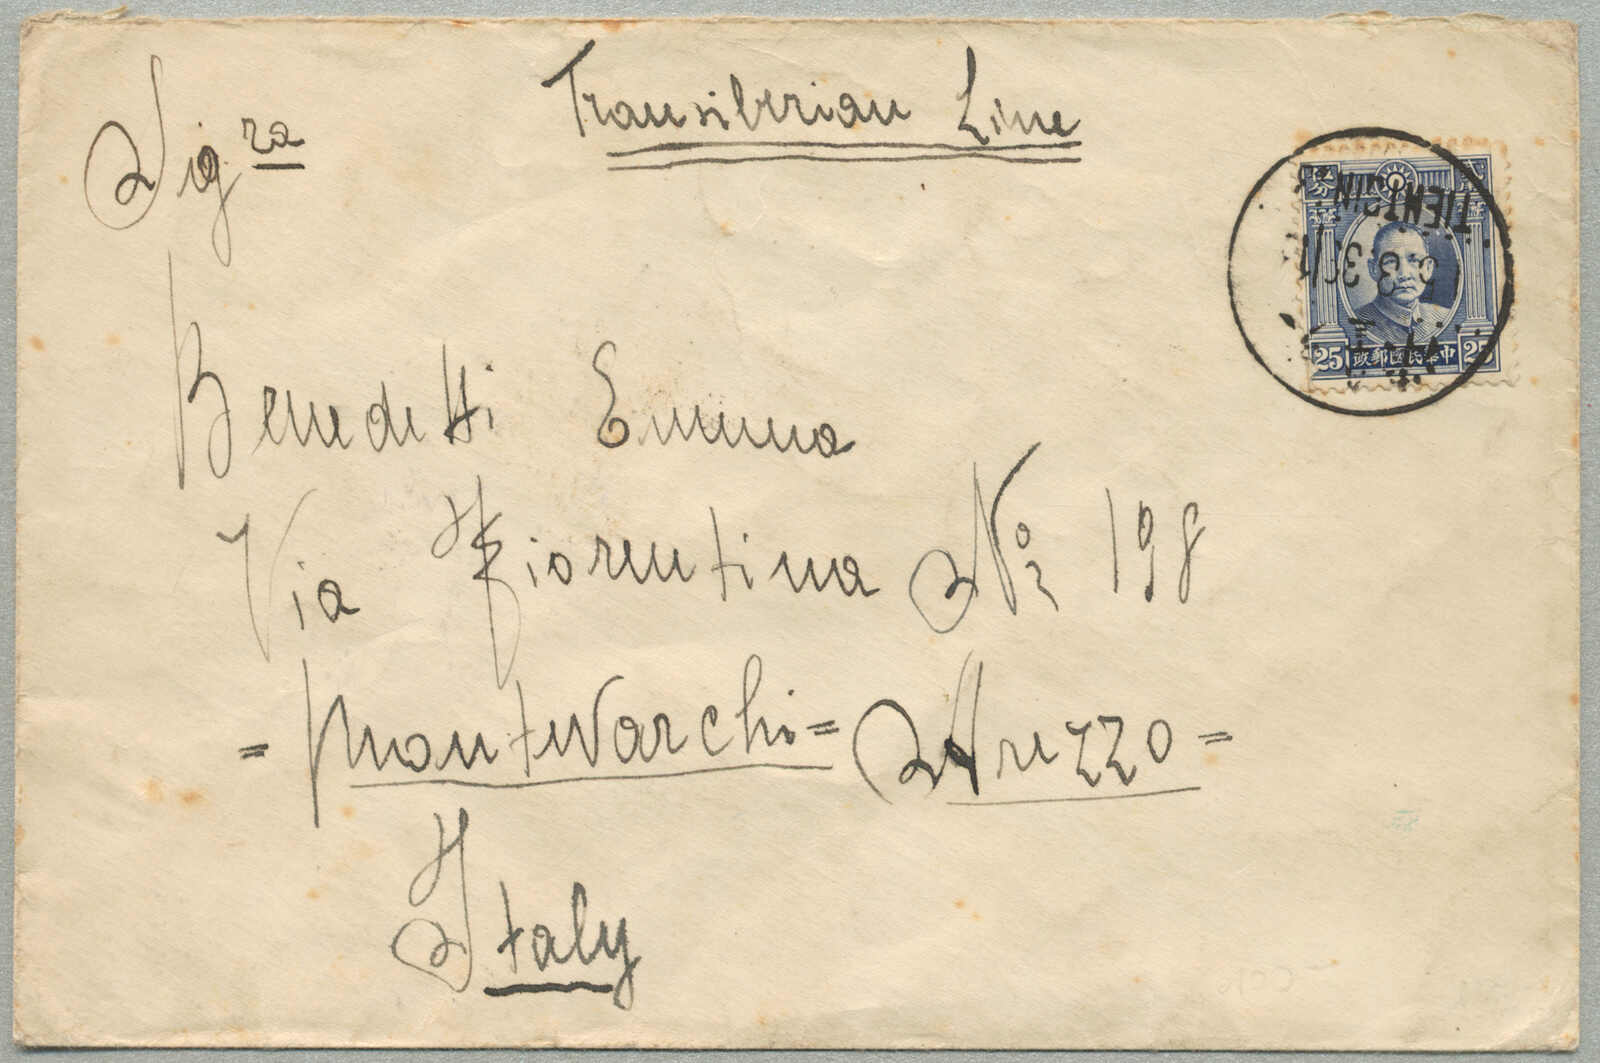 Transiberian Line
Sig.ra
Benedetti Emma
Via Fiorentina No 198
= Montevarchi = Arezzo =
Italy
TIENTSIN
25 中華民國郵政 25